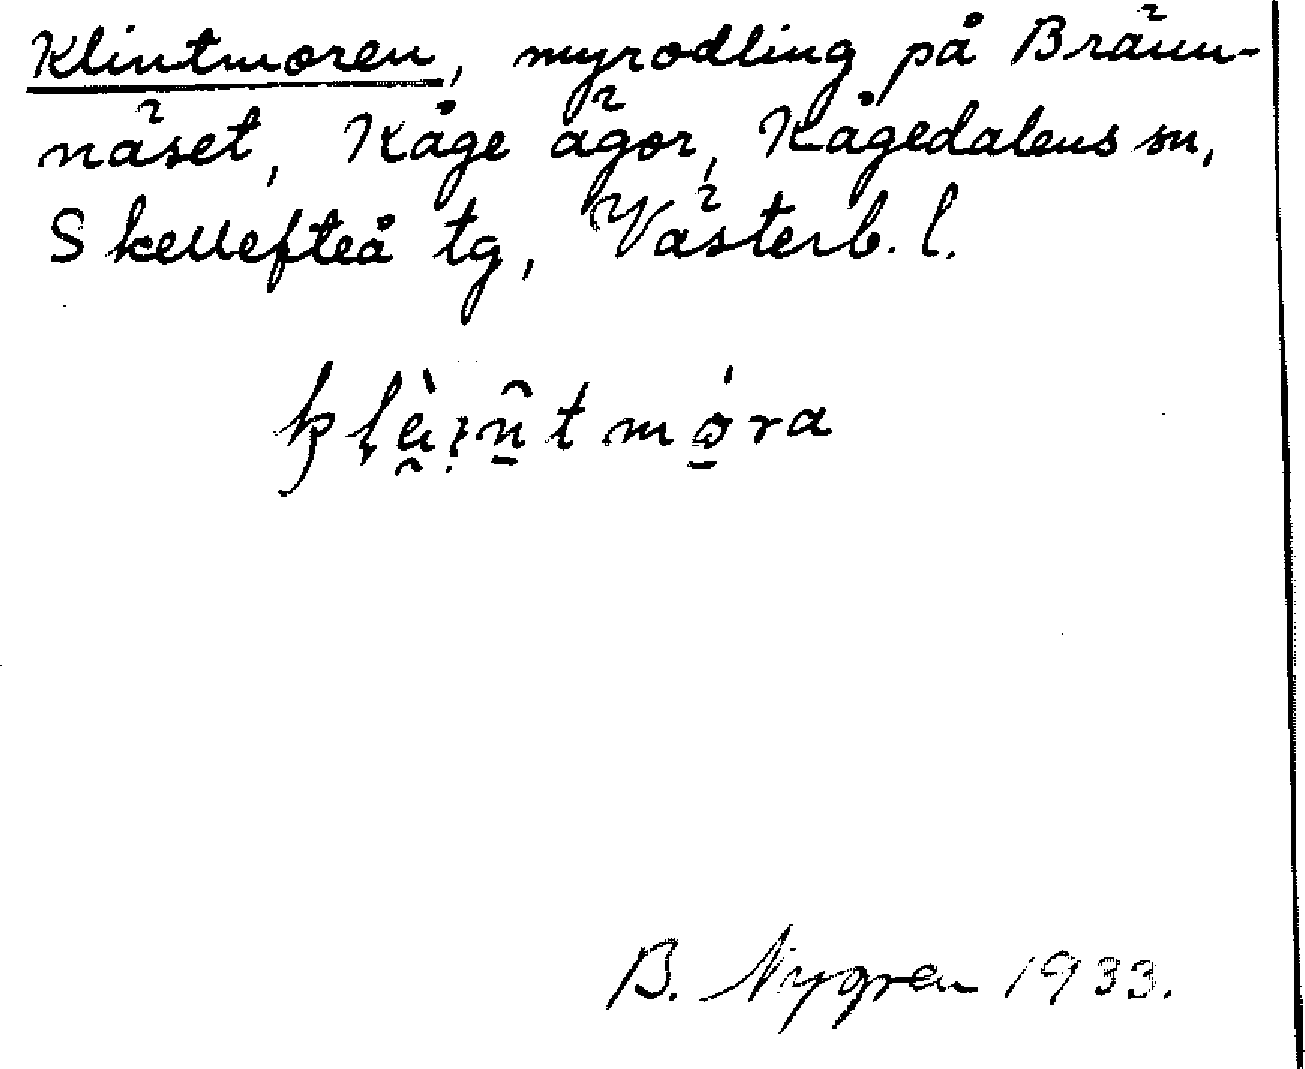 Klintmoren, myrodling på Bränn-
näset, Kåge ägor, Kågedalens sn,
Skellefteå tg, Västerb. l.
B. Nygren 1933.